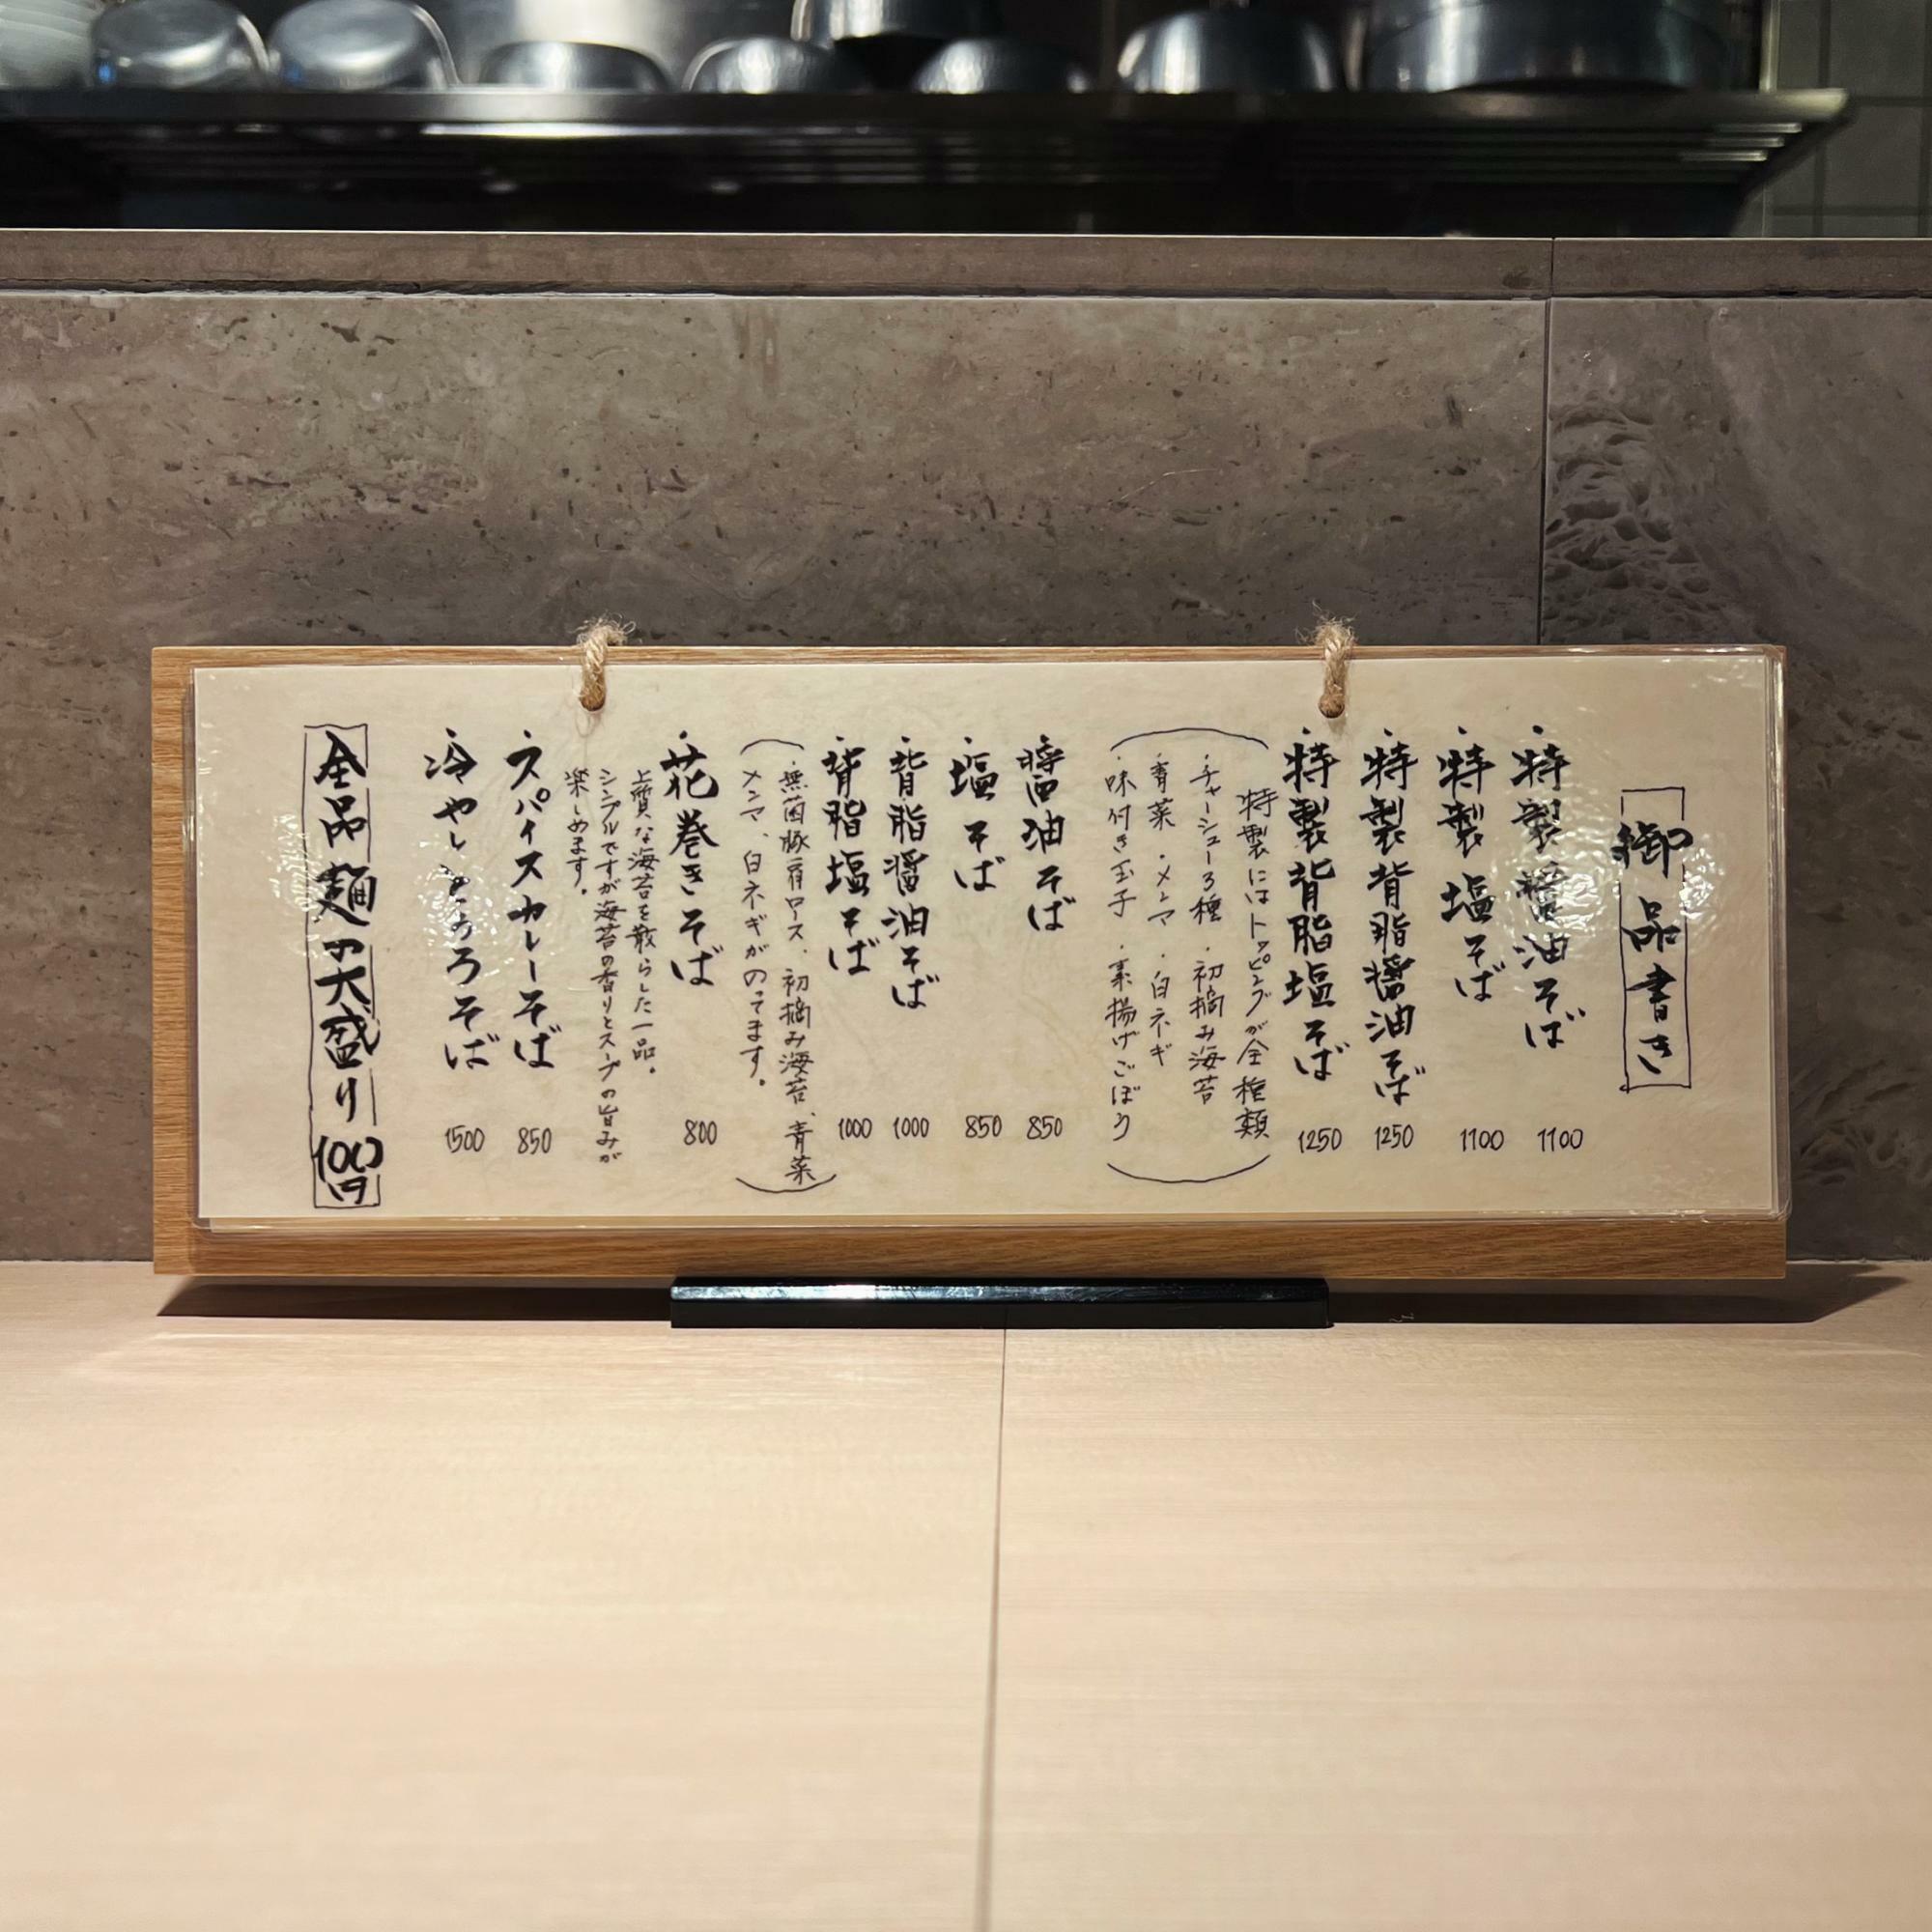 御品書き
・特製醤油そば 1100
・特製塩そば 1100
・特製背脂醤油そば 1250
・特製背脂塩そば 1250
特製にはトッピングが全種類
・チャーシュー3種 ・初摘み海苔
・青菜 ・メンマ ・白ネギ
・味付き玉子 ・素揚げごぼう
・醤油そば 850
・塩そば 850
・背脂醤油そば 1000
・背脂塩そば 1000
・無菌豚肩ロース、初摘み海苔、青菜
メンマ、白ネギがのってます。
・花巻きそば 800
上質な海苔を散らした一品。
シンプルですが海苔の香りとスープの旨みが
楽しめます。
・スパイスカレーそば 850
・冷やしとろろそば 1500
全品麺の大盛り100円